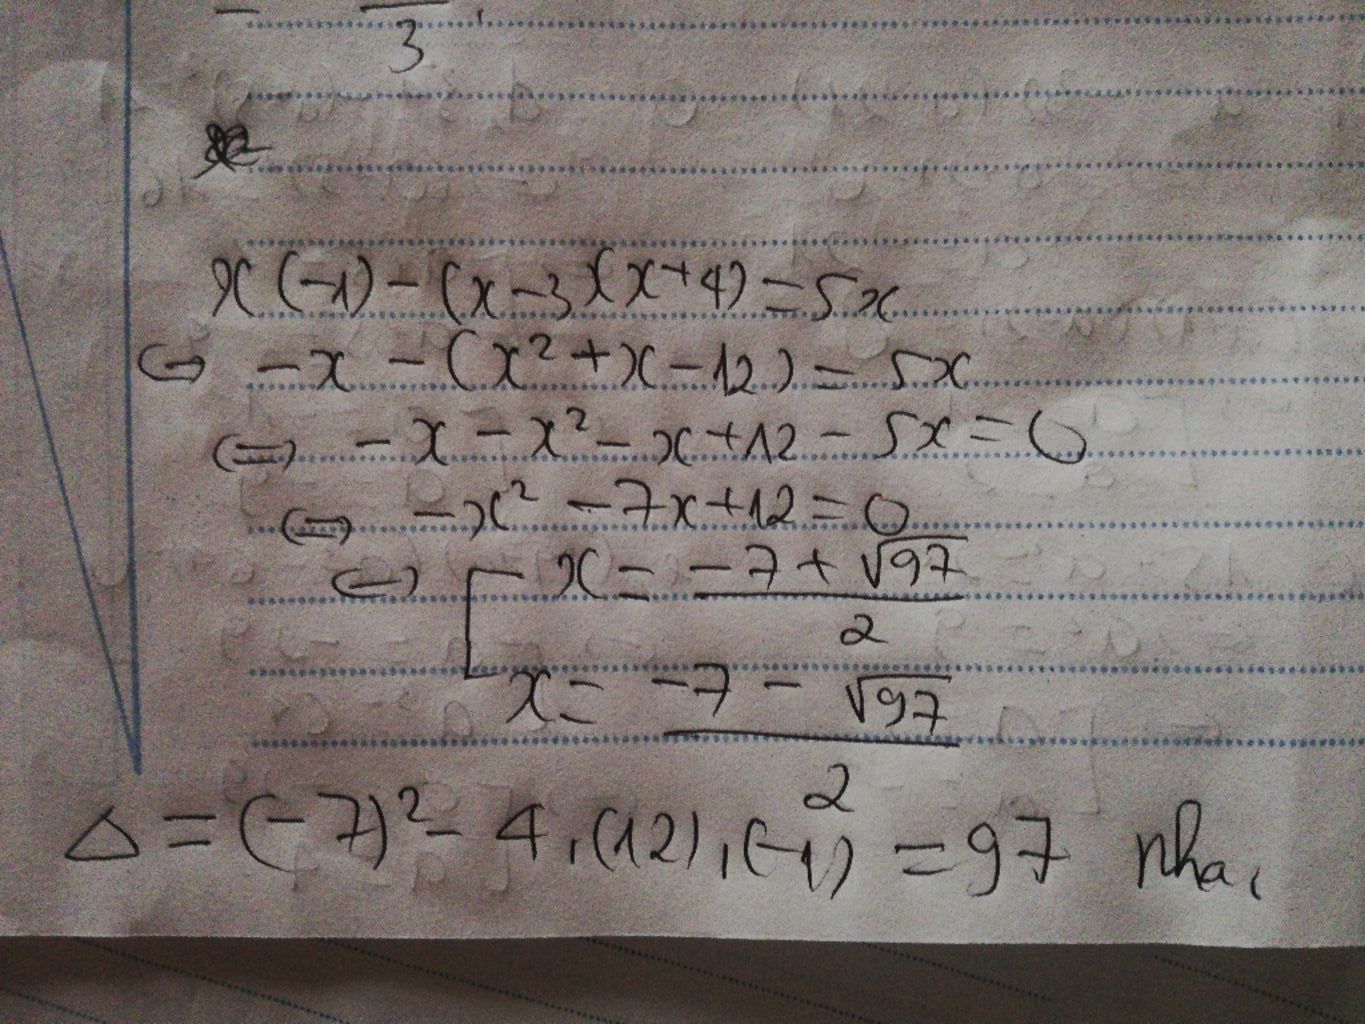 3
x(-1)-(x-3)(x+4)=5x
⇔ -x-(x²+x-12)=5x
⇔ -x-x²-x+12-5x=0
⇔ -x²-7x+12=0
⇔ [ x= (-7+√97)/2
x= (-7-√97)/2
Δ=(-7)²-4.(12).(-1)=97 nha.